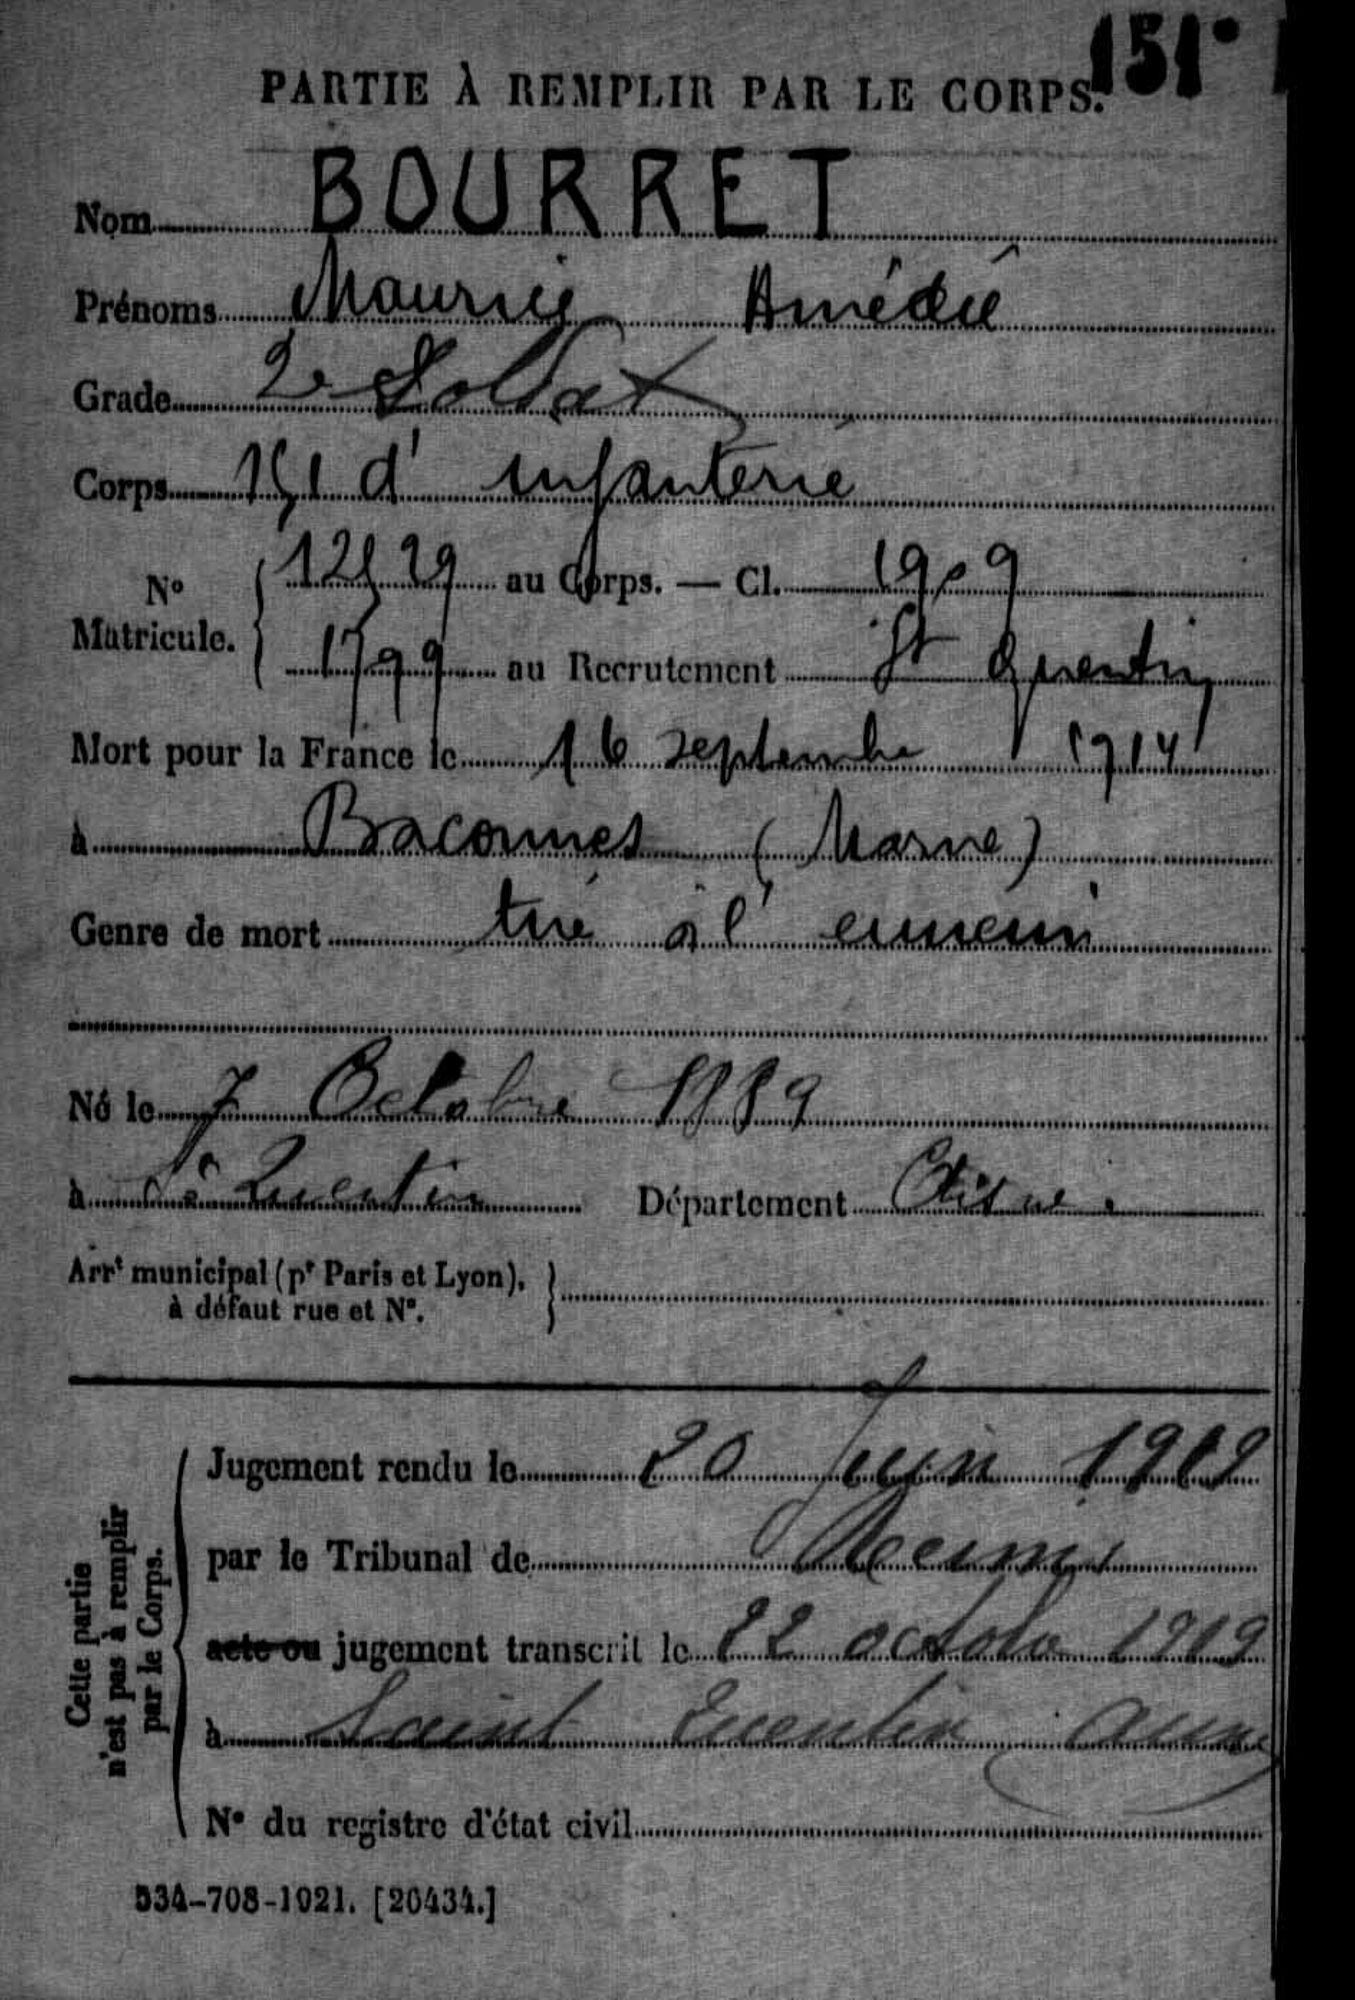 151°
PARTIE À REMPLIR PAR LE CORPS.
Nom BOURRET
Prénoms Maurice Amédée
Grade 2e Soldat
Corps 151 d' infanterie
N° Matricule. { 12529 au Corps. — Cl. 1909
1799 au Recrutement St Quentin
Mort pour la France le 16 septembre 1914
à Baconnes (Marne)
Genre de mort tué à l'ennemi
Né le 7 Octobre 1889
à St Quentin Département Aisne
Arrt municipal (pr Paris et Lyon), à défaut rue et N°. }
Cette partie n'est pas à remplir par le Corps.
Jugement rendu le 20 Juin 1919
par le Tribunal de Reims
acte ou jugement transcrit le 22 octobre 1919
à Saint Quentin Aisne
N° du registre d'état civil
534-708-1921. [20434.]